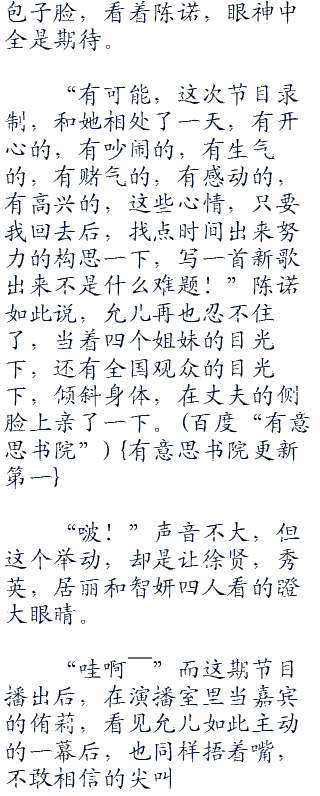 包子脸，看着陈诺，眼神中
全是期待。
“有可能，这次节目录
制，和她相处了一天，有开
心的，有吵闹的，有生气
的，有赌气的，有感动的，
有高兴的，这些心情，只要
我回去后，找点时间出来努
力的构思一下，写一首新歌
出来不是什么难题！”陈诺
如此说，允儿再也忍不住
了，当着四个姐妹的目光
下，还有全国观众的目光
下，倾斜身体，在丈夫的侧
脸上亲了一下。(百度“有意
思书院”){有意思书院更新
第一}
“啵！”声音不大，但
这个举动，却是让徐贤，秀
英，居丽和智妍四人看的瞪
大眼睛。
“哇啊——”而这期节目
播出后，在演播室里当嘉宾
的侑莉，看见允儿如此主动
的一幕后，也同样捂着嘴，
不敢相信的尖叫